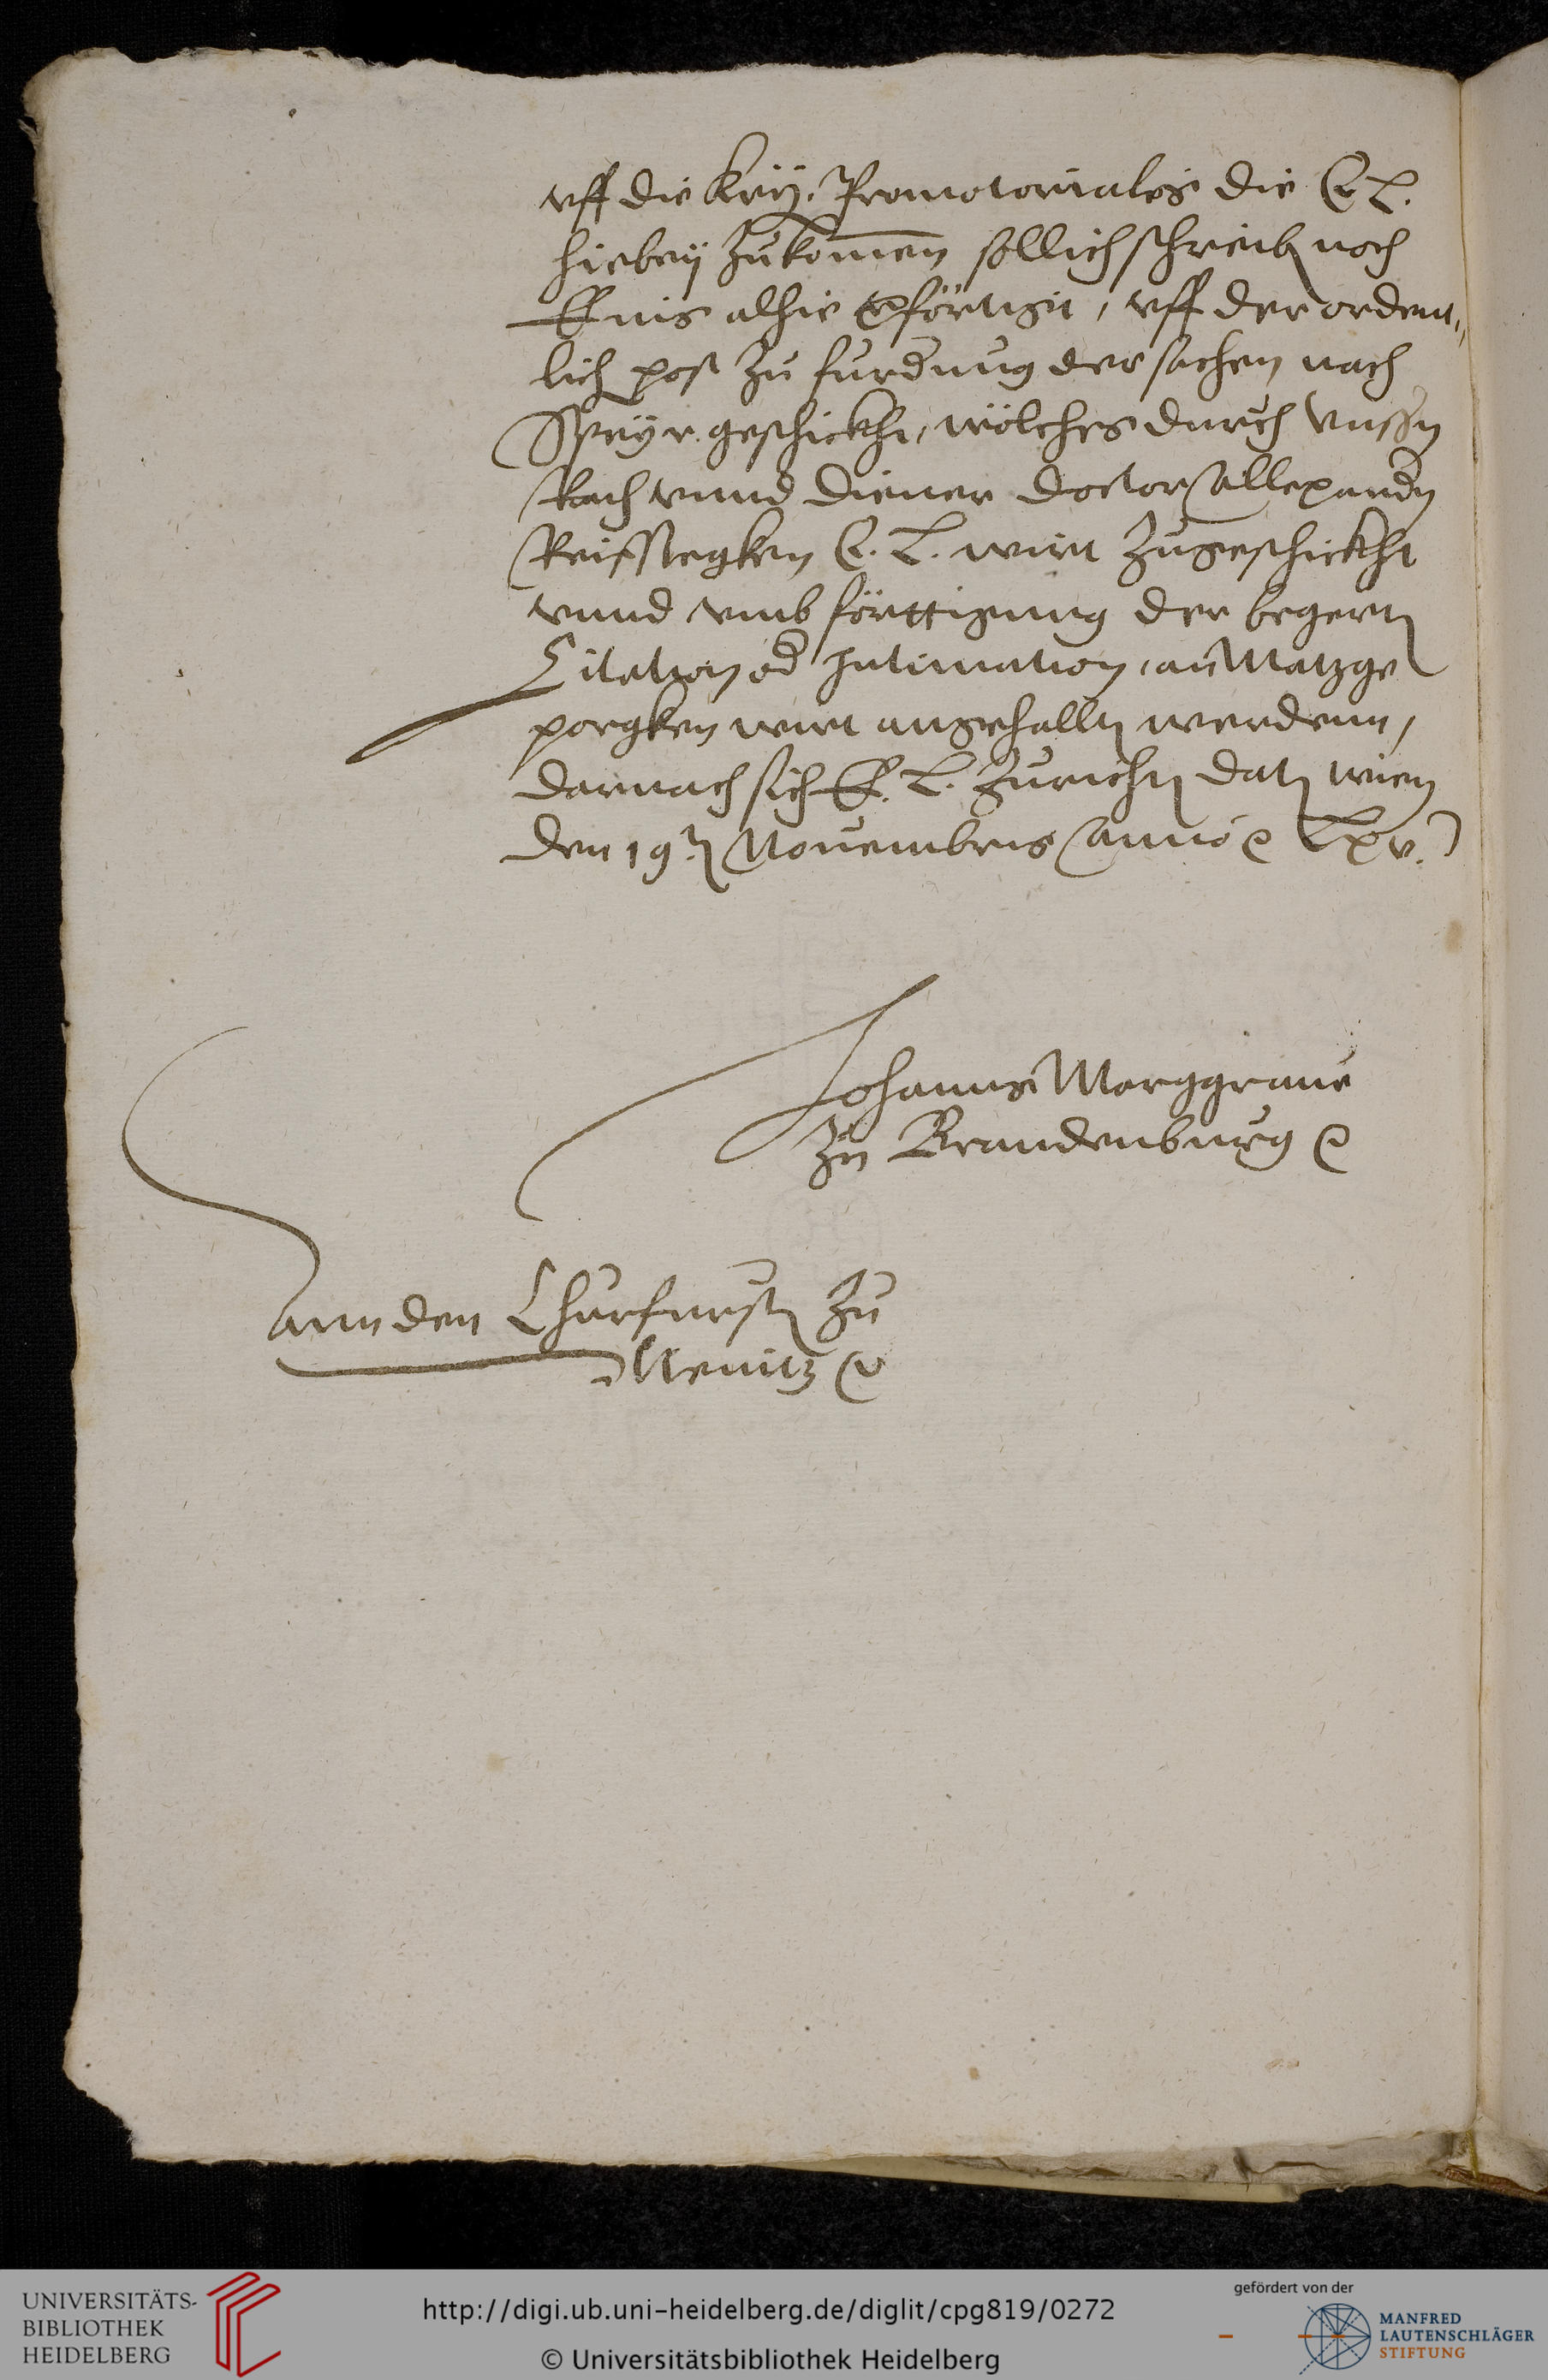 vff die key. Promotoriales die E L.
hiebey zukomen sollich schreib noch
alhie gefördtigt, vff der ordent„
lich post zu furdrung der sachen nach
Speyr geschickht, wölches durch vnssn
Rath vnnd diener doctor Allexandn
Reiffstegken E. L. wirt zugeschickht
vnnd vmb förttigung der begertn
Citation od Intimation, an Matzge
porgken wirt angehalltn werdenn,
darnach sich E. L. zurichtn datn wien
den 19.tn Nouembris Anno &c Lxv.
Johanns Marggraue
zu Brandenburg &c
Ann den Churfurstn zu
Mentz &c
UNIVERSITÄTS-
BIBLIOTHEK
HEIDELBERG
http://digi.ub.uni-heidelberg.de/diglit/cpg819/0272
© Universitätsbibliothek Heidelberg
gefördert von der
MANFRED
LAUTENSCHLÄGER
STIFTUNG